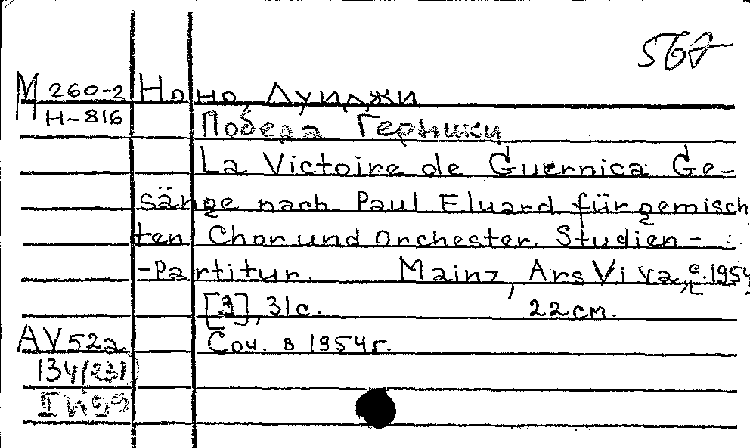 567
М 260-2 Ноно, Луиджи
Н-816
Победа Герники
La Victoire de Guernica Ge-
sänge nach Paul Eluard für gemisch
ten Chor und Orchester. Studien-
-Partitur. Mainz, Ars Viva, c. 1954,
[3], 31 с. 22 см.
AV52a Соч. в 1954 г.
134/(231